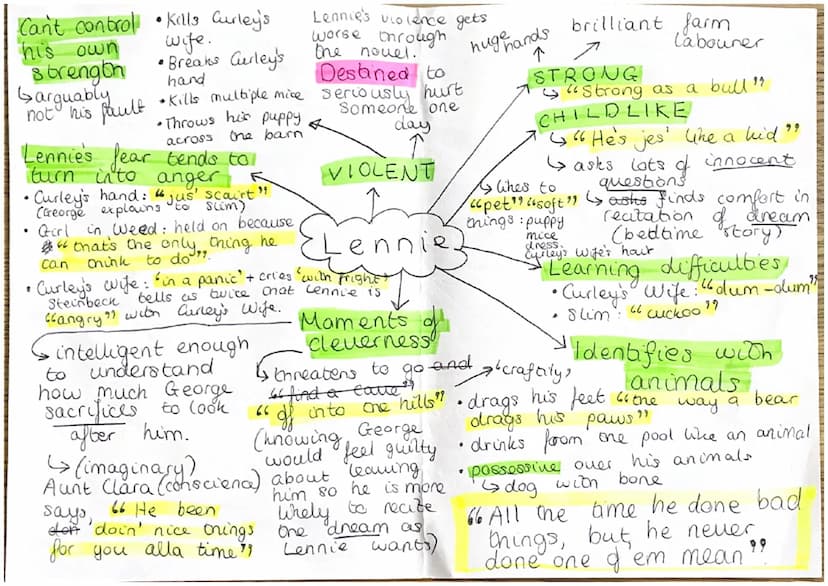 Can't control
his own
strength
↳ arguably
not his fault
• Kills Curley's
wife.
• Breaks Curley's
hand
• Kills multiple mice
• Throws his puppy
across the barn
Lennie's violence gets
worse through
the novel.
Destined to
seriously hurt
someone one
day
VIOLENT
Lennie's fear tends to
turn into anger
• Curley's hand: "jus' scairt"
(George explains to Slim)
• Girl in Weed: held on because
"that's the only thing he
can think to do".
• Curley's wife: "in a panic" + cries "with fright"
Steinbeck tells us twice that Lennie is
"angry" with Curley's Wife.
Lennie
huge hands
brilliant farm
labourer
STRONG
↳ "Strong as a bull"
CHILDLIKE
↳ "He's jes' like a kid"
↳ asks lots of innocent
questions
↳ asks finds comfort in
recitation of dream
(bedtime story)
↳ likes to
"pet" "soft"
things: puppy
mice
dress
Curley's wife's hair
Learning difficulties
• Curley's Wife: "dum-dum"
• Slim: "cuckoo"
Identifies with
animals
• drags his feet "the way a bear
drags his paws"
• drinks from the pool like an animal
• possessive over his animals
↳ dog with bone
"All the time he done bad
things, but he never
done one of em mean".
Moments of
cleverness
↳ threatens to go and
"find a cave"
"off into the hills"
'craftily'
(knowing George
would feel guilty
about leaving
him so he is more
likely to recite
the dream as
Lennie wants)
↳ intelligent enough
to understand
how much George
sacrifices to look
after him.
↳ (imaginary)
Aunt Clara (conscience)
says, "He been
doin' nice things
for you alla time"